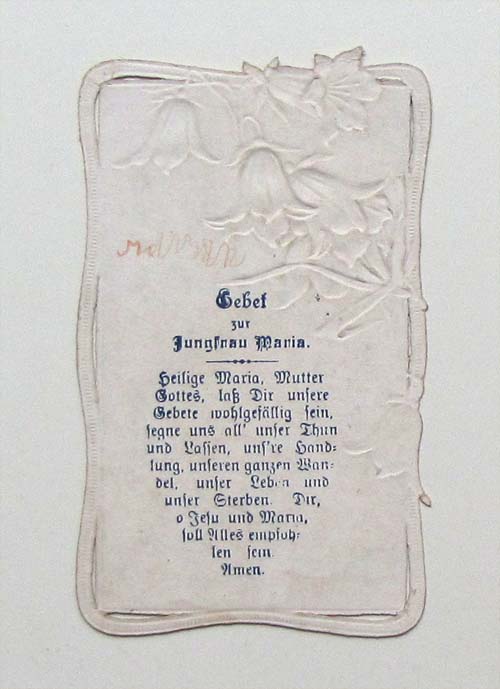 Gebet
zur
Jungfrau Maria.
Heilige Maria, Mutter
Gottes, laß Dir unsere
Gebete wohlgefällig sein,
segne uns all' unser Thun
und Lassen, uns're Hand-
lung, unseren ganzen Wan-
del, unser Leben und
unser Sterben. Dir,
o Jesu und Maria,
soll Alles empfoh-
len sein.
Amen.